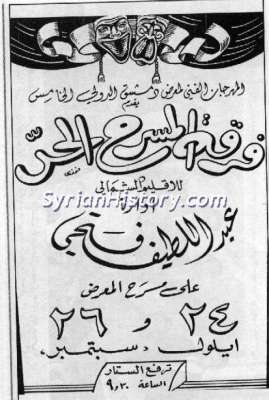 المهرجان الفني لمعرض دمشق الدولي الخامس
يقدم
فرقة المسرح الحرّ
للاقليم الشمالي
ادارة
SyrianHistory.com
عبد اللطيف فتحي
على مسرح المعرض
٢٤ و ٢٦
ايلول، سبتمبر،
ترفع الستار
الساعة ٩,٣٠